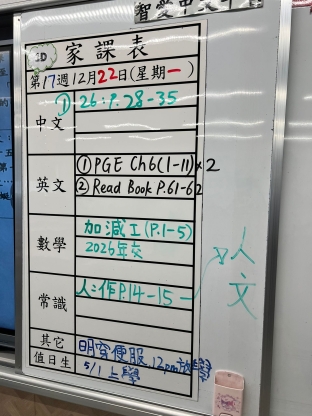 1D 家課表
第17週12月22日(星期一)
中文
① 26:P.28-35
英文
① PGE Ch6(1-11)×2
② Read Book P.61-62
數學
加減工(P.1-5)
2026年交
常識
人:作P.14-15
人文
其它
明穿便服,12pm放學
值日生
5/1上學